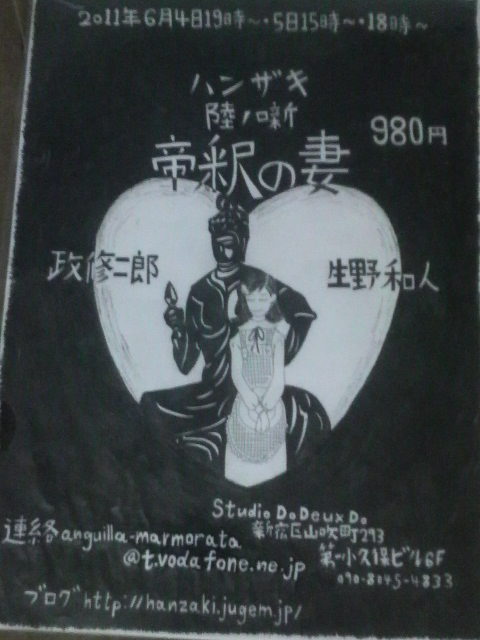 2011年6月4日19時～・5日15時～・18時～
ハンザキ
陸ノ噺
980円
帝釈の妻
政修二郎
生野和人
Studio Do Deux Do
新宿区山吹町293
第一小久保ビル6F
090-8045-4833
連絡anguilla-marmorata
@t.vodafone.ne.jp
ブログhttp://hanzaki.jugem.jp/